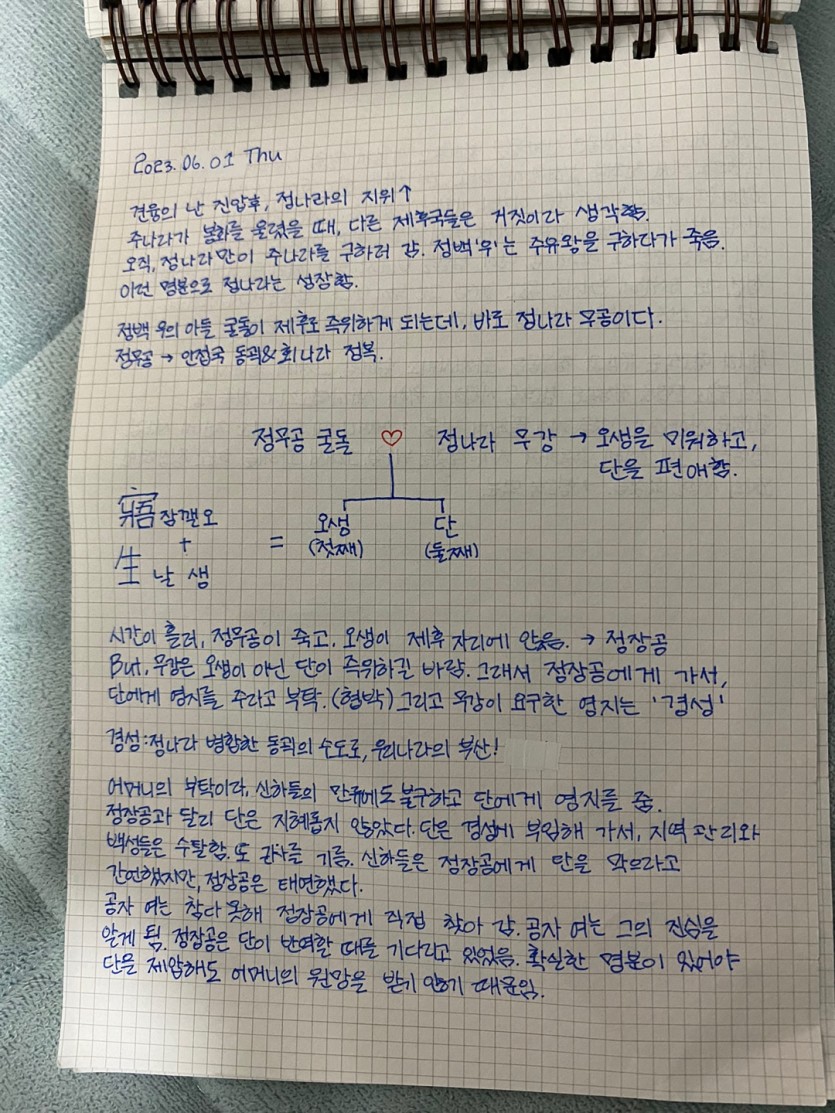 2023.06.01 Thu
견융의 난 진압후, 정나라의 지위↑
주나라가 봉화를 올렸을 때, 다른 제후국들은 거짓이라 생각함.
오직, 정나라만이 주나라를 구하러 감. 정백'우'는 주유왕을 구하다가 죽음.
이런 명분으로 정나라는 성장함.
정백 우의 아들 굴돌이 제후로 즉위하게 되는데, 바로 정나라 무공이다.
정무공 → 인접국 동괵&회나라 정복.
정무공 굴돌 ♡ 정나라 무강 → 오생을 미워하고,
단을 편애함.
寤 잠깰오
+
生 날 생
=
오생
(첫째)
단
(둘째)
시간이 흘러, 정무공이 죽고, 오생이 제후 자리에 앉음. → 정장공
But, 무강은 오생이 아닌 단이 즉위하길 바람. 그래서 정장공에게 가서,
단에게 영지를 주라고 부탁. (협박) 그리고 무강이 요구한 영지는 '경성'
경성:정나라 병합한 동괵의 수도로, 우리나라의 부산!
어머니의 부탁이라, 신하들의 만류에도 불구하고 단에게 영지를 줌.
정장공과 달리 단은 지혜롭지 않았다. 단은 경성에 부임해 가서, 지역 관리와
백성들은 수탈함. 또 군사를 기름. 신하들은 정장공에게 단을 막으라고
간언했지만, 정장공은 태연했다.
공자 여는 참다 못해 정장공에게 직접 찾아 감. 공자 여는 그의 진심을
알게 됨. 정장공은 단이 반역할 때를 기다리고 있었음. 확실한 명분이 있어야
단을 제압해도 어머니의 원망을 받기 않기 때문임.